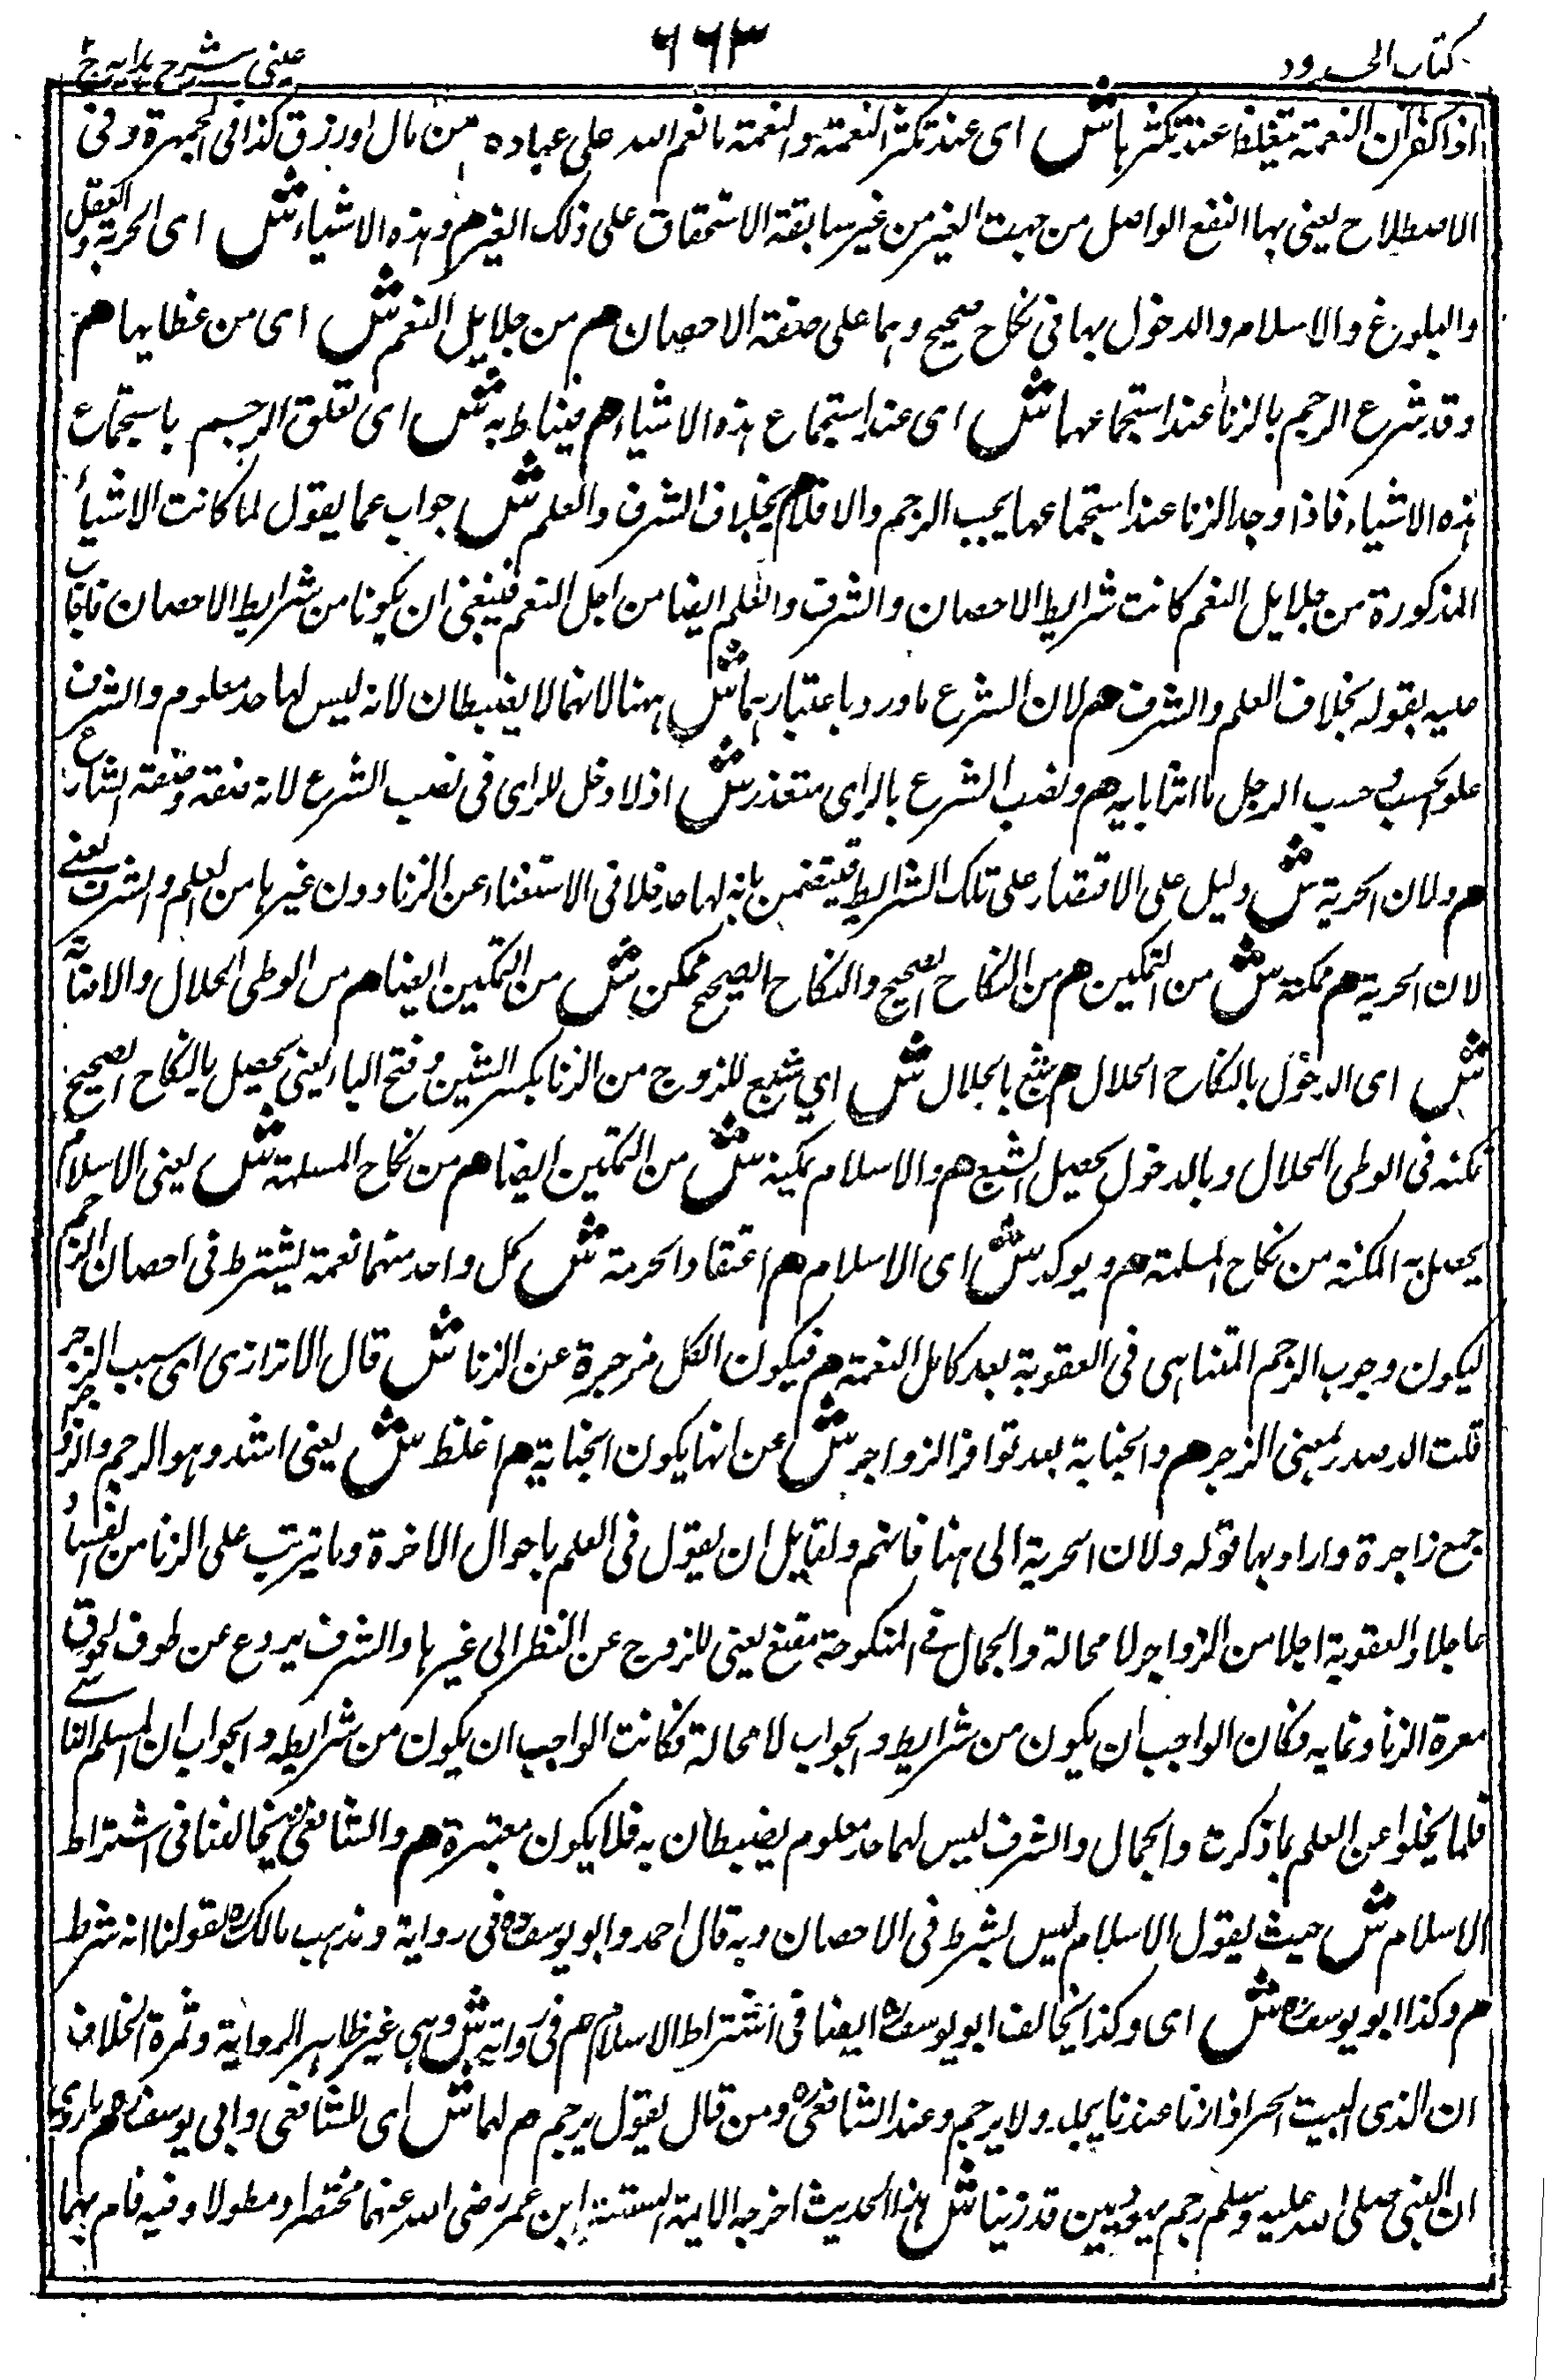 كتاب الحدود
٦٦٣
عيني شرح هدايه ج
اذ كفران النعمة يتغلظ عند تكثرها ش اى عند تكثر النعمة والنعمة ما نعم الله على عباده من مال او رزق كذا فى الجمهرة وفى
الاصطلاح يعنى بها النفع الواصل من جهت الغير من غير سابقة الاستحقاق على ذلك الغير هم وهذه الاشياء ش اى الحرية والعقل
والبلوغ والاسلام والدخول بها فى نكاح صحيح وهما على صفة الاحصان هم من جلايل النعم ش اى من عظايمها هم
وقد شرع الرجم بالزنا عند استجماعها ش اى عند استجماع هذه الاشياء هم فيناط به ش اى تعلق الرجم باستجماع
هذه الاشياء فاذا وجد الزنا عند استجماعها يجب الرجم والا فلا هم بخلاف الشرف والعلم ش جواب عما يقول لما كانت الاشياء
المذكورة من جلايل النعم كانت شرايط الاحصان والشرف والعلم ايضا من اجل النعم فينبغى ان يكونا من شرايط الاحصان فاجاب
عليه بقوله بخلاف العلم والشرف هم لان الشرع ما ورد باعتبارهما ش ههنا لانهما لا يضبطان لانه ليس لها حد معلوم والشرف
علو الحسب وحسب الرجل مااثر ابايه هم ونصب الشرع بالراى متعذر ش اذ لا دخل للراى فى نصب الشرع لانه صفة وصفة الشارع
هم ولان الحرية ش دليل على الاقتصار على تلك الشرايط فيتضمن بانه لها مدخلا فى الاستغناء عن الزنا دون غيرها من العلم والشرف يعنے
لان الحرية هم ممكنة ش من التمكين هم من النكاح الصحيح والنكاح الصحيح ممكن ش من التمكين ايضا هم من الوطى الحلال والاصابة
ش اى الدخول بالنكاح الحلال هم شبع بالحلال ش اي شبع للزوج من الزنا بكسر الشين وفتح الباء يعنى يحصل بالنكاح الصحيح
تمكنه فى الوطى الحلال وبالدخول يحصل الشبع هم والاسلام يمكنه ش من التمكين ايضا هم من نكاح المسلمة ش يعنى الاسلام
يحصل به المكنة من نكاح المسلمة هم ويوكد ش اى الاسلام هم اعتقاد الحرمة ش كل واحد منهما نعمة يشترط فى احصان الرجم
ليكون وجوب الرجم المتناهى فى العقوبة بعد كامل النعمة هم فيكون الكل مزجرة عن الزنا ش قال الاترازى اى سبب الزجر
قلت المصدر بمعنى الزجر هم والجناية بعد توافر الزواجر ش عن انها يكون الجناية هم اغلظ ش يعنى اشد وهو الرجم والزواجر
جمع زاجرة واراد بها قوله ولان الحرية الى هنا فافهم ولقايل ان يقول فى العلم باحوال الاخرة وما يترتب على الزنا من الفساد
عاجلا والعقوبة اجلا من الزواجر لا محالة والجمال فے المنكوحة مقنع يعنى للزوج عن النظر الى غيرها والشرف يردع عن لحوق
معرة الزنا وتمايه فكان الواجب ان يكون من شرايط والجواب لا محالة فكانت الواجب ان يكون من شرايطه والجواب ان المسلم الناشے
قلما يخلوا عن العلم بما ذكرت والجمال والشرف ليس لهما حد معلوم يضبطان به فلا يكون معتبرة هم والشافعى يخالفنا فى اشتراط
الاسلام ش حيث يقول الاسلام ليس بشرط فى الاحصان وبه قال احمد وابو يوسف فى رواية ومذهب مالك كقولنا انه شرط
هم وكذا ابو يوسف ش اى وكذا يخالف ابو يوسف ايضا فى اشتراط الاسلام هم فى رواية ش وهى غير ظاهر الرواية وثمرة الخلاف
ان الذمى الثيب الحر اذا زنا عندنا يجلد ولا يرجم وعند الشافعى ومن قال بقوله يرجم هم لهما ش اى للشافعى وابى يوسف هم ما روى
ان النبى صلى الله عليه وسلم رجم يهوديين قد زنيا ش هذا الحديث اخرجه الايمة الستة ابن عمر رضى الله عنهما مختصرا ومطولا وفيه فامر بهما